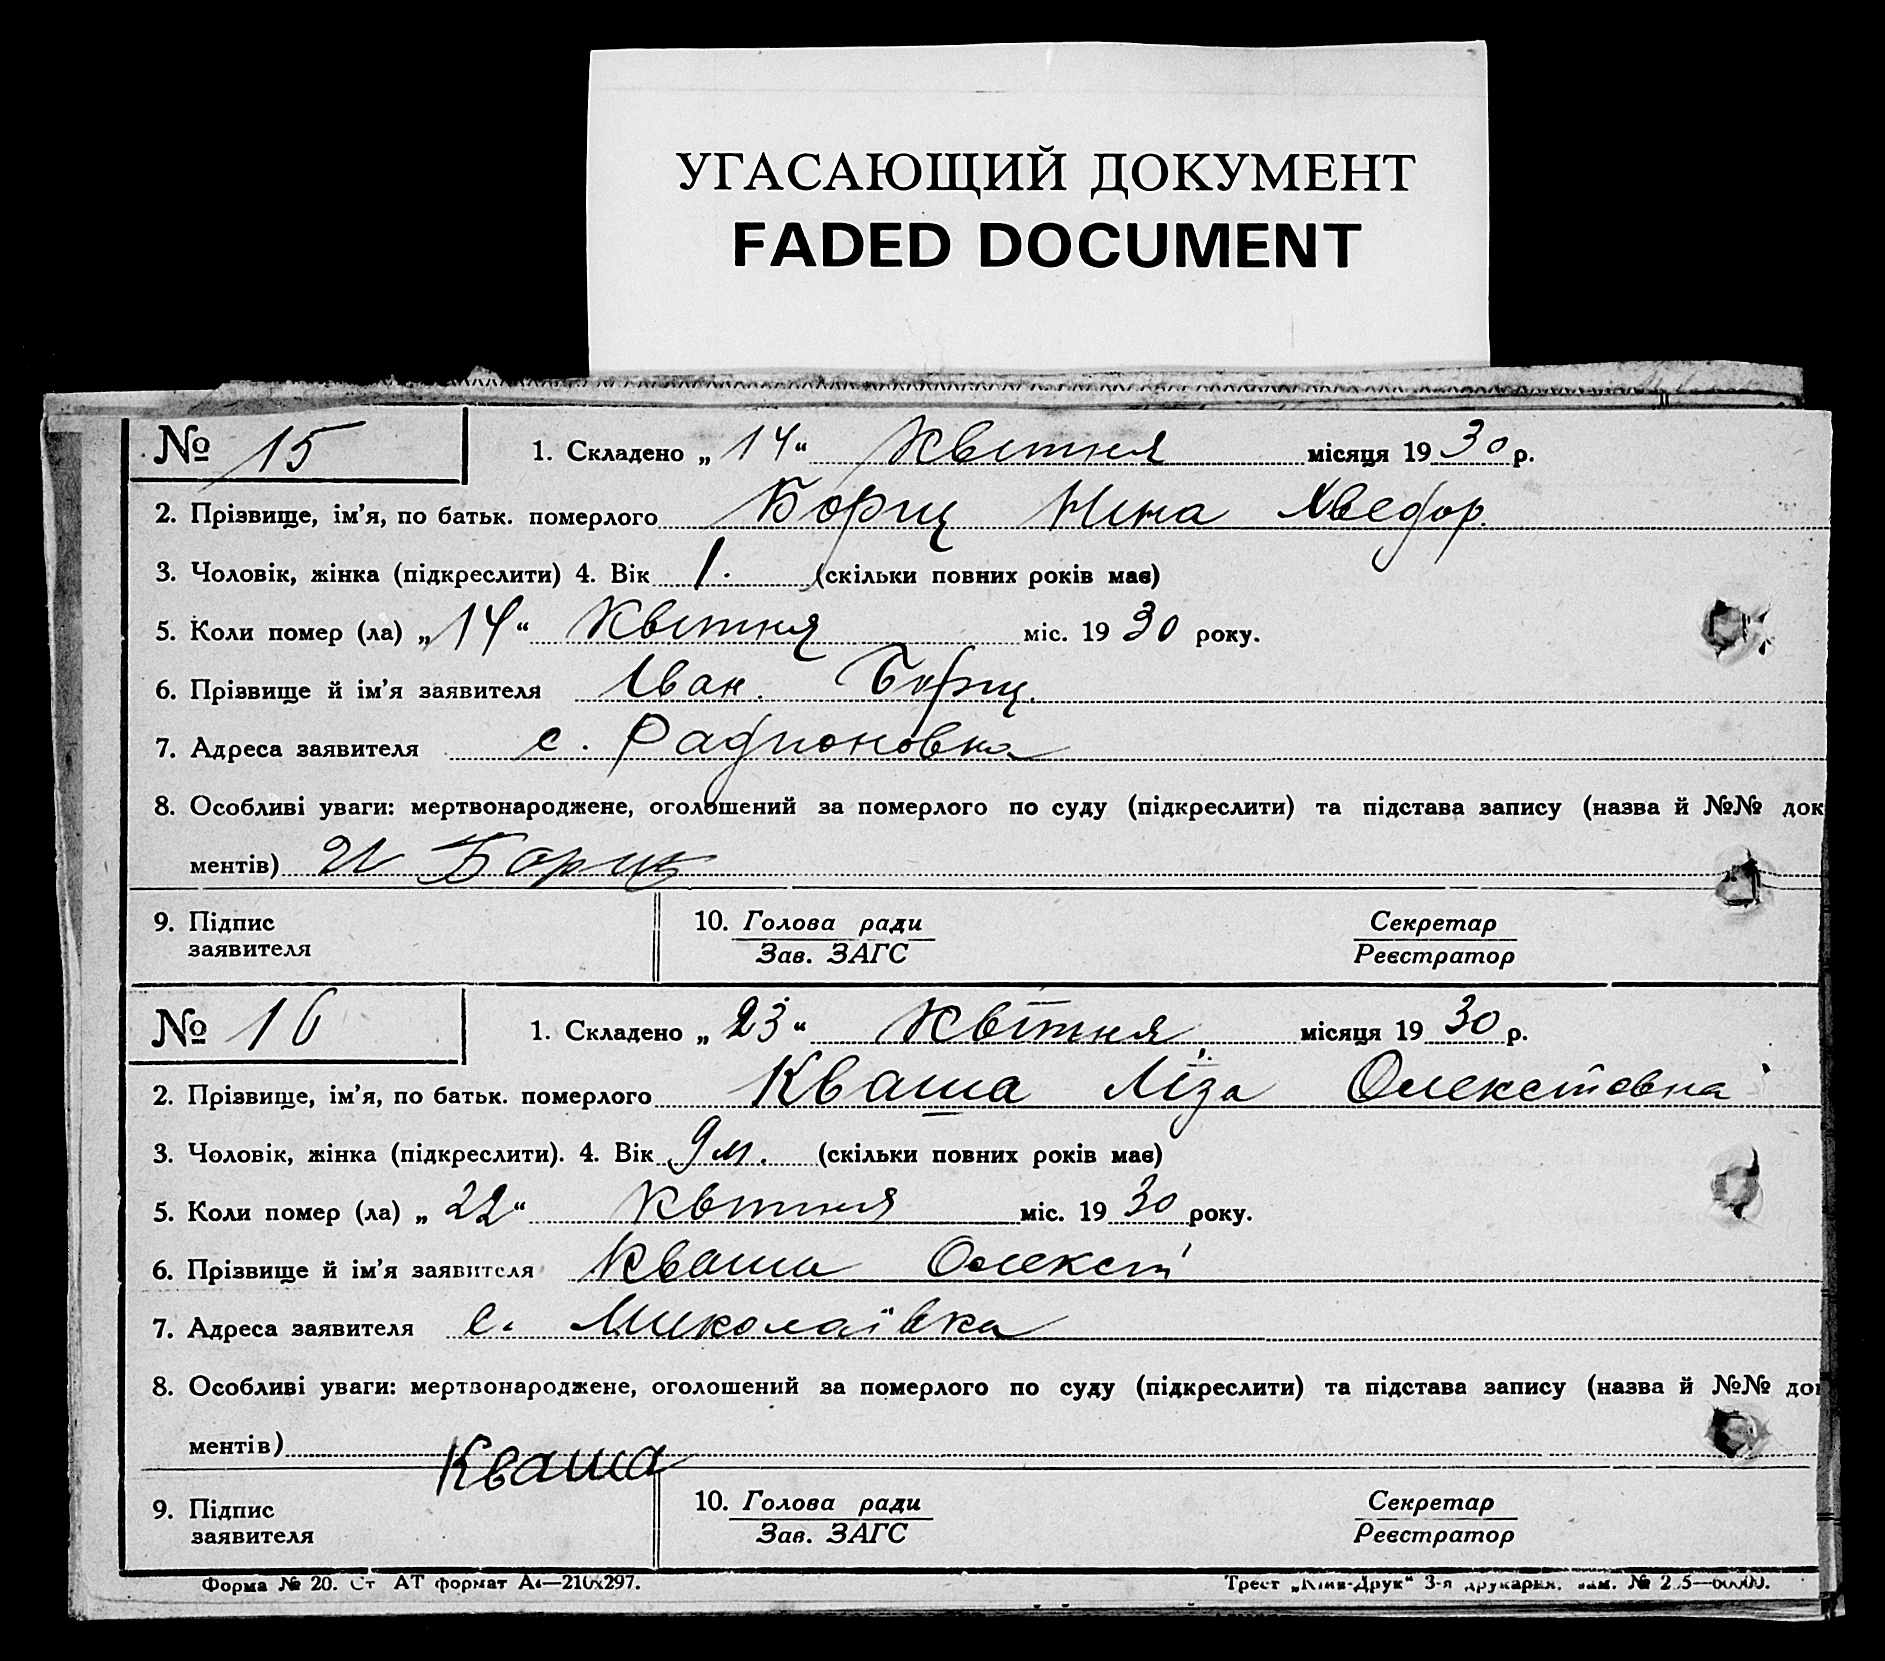 УГАСАЮЩИЙ ДОКУМЕНТ
FADED DOCUMENT
№ 15 1. Складено „14“ Квітня місяця 1930 р.
2. Прізвище, ім’я, по батьк. померлого Борщ Нина Хведор.
3. Чоловік, жінка (підкреслити) 4. Вік 1. (скільки повних років має)
5. Коли помер (ла) „14“ Квітня міс. 1930 року.
6. Прізвище й ім’я заявителя Іван. Борщ.
7. Адреса заявителя с. Радионовка
8. Особливі уваги: мертвонароджене, оголошений за померлого по суду (підкреслити) та підстава запису (назва й №№ док
ментів) И Борщ
9. Підпис заявителя 10. Голова ради Секретар
Зав. ЗАГС Реєстратор
№ 16 1. Складено „23“ Квітня місяця 1930 р.
2. Прізвище, ім’я, по батьк. померлого Кваша Ліза Олексіевна
3. Чоловік, жінка (підкреслити). 4. Вік 9 м. (скільки повних років має)
5. Коли помер (ла) „22“ Квітня міс. 1930 року.
6. Прізвище й ім’я заявителя Кваша Олексій
7. Адреса заявителя с. Миколаївка
8. Особливі уваги: мертвонароджене, оголошений за померлого по суду (підкреслити) та підстава запису (назва й №№ док
ментів)
Кваша
9. Підпис заявителя 10. Голова ради Секретар
Зав. ЗАГС Реєстратор
Форма № 20. Ст АТ формат А4—210x297. Трест „Київ-Друк“ 3-я друкарня, зам. №